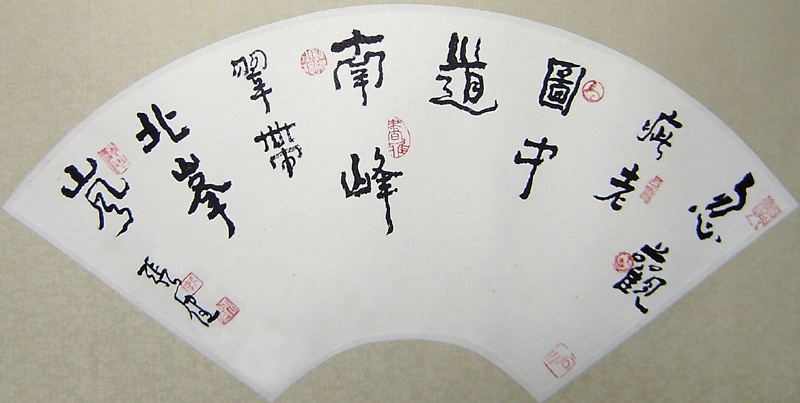 忽觀
老
圖中
道
南峰
翠帶
北峯
嵐
張